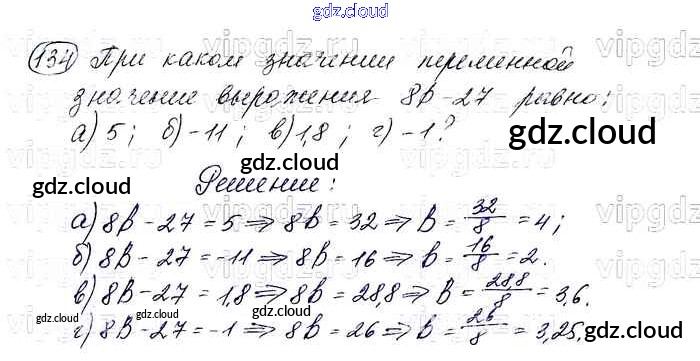 gdz.cloud
134 При каком значении переменной
значение выражения 8В-27 равно:
а) 5; б) -11; в) 1,8; г) -1?
gdz.cloud
gdz.cloud
gdz.cloud
Решение:
а) 8В - 27 = 5 ⇒ 8В = 32 ⇒ В = 32/8 = 4;
б) 8В - 27 = -11 ⇒ 8В = 16 ⇒ В = 16/8 = 2.
в) 8В - 27 = 1,8 ⇒ 8В = 28,8 ⇒ В = 28,8/8 = 3,6.
г) 8В - 27 = -1 ⇒ 8В = 26 ⇒ В = 26/8 = 3,25.
gdz.cloud
gdz.cloud
gdz.cloud
gdz.cloud